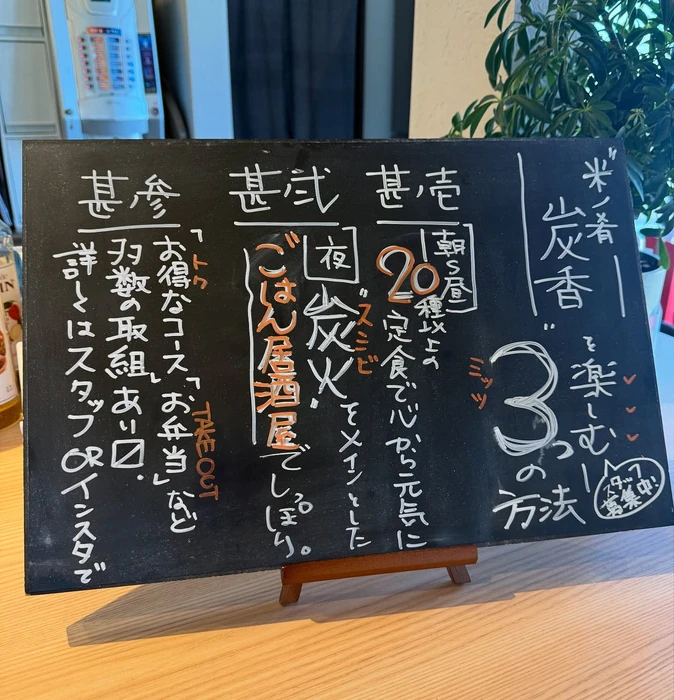 米ノ肴
"炭香"
を楽しむー
3つの方法
ミッツ
スタッフ
募集中!
甚壱
朝〜昼
20種以上の
定食で心から元気に
甚弐
夜
"炭火"をメインとした
スミビ
ごはん居酒屋でしっぽり。
甚参
「お得なコース「お弁当」など
トク
TAKE OUT
多数の取組」あり〼.
詳しくはスタッフORインスタで